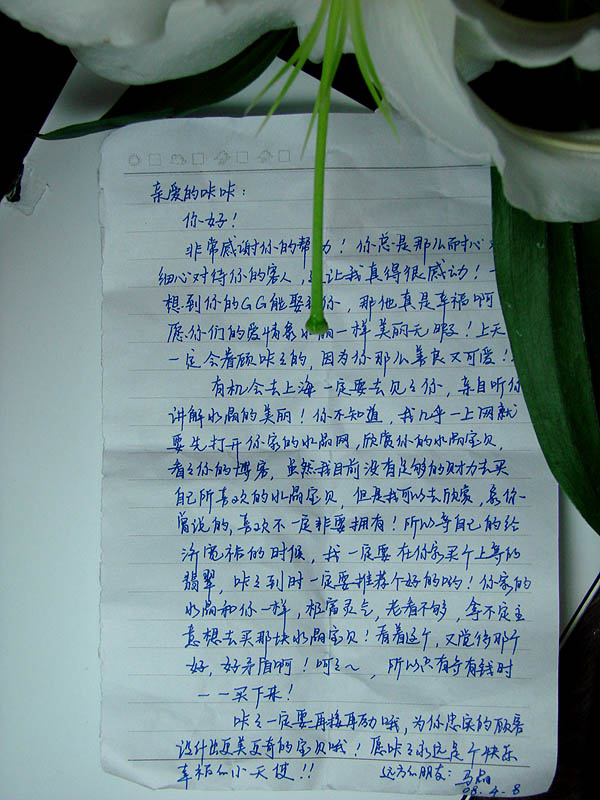 亲爱的咔咔：
你好！
非常感谢你的帮力！你总是那么耐心
细心对待你的客人，让我真得很感动！
想到你的GG能娶你，那他真是幸福啊
愿你们的爱情象 一样美丽无暇！上天
一定会眷顾咔々的，因为你那么善良又可爱！
有机会去上海一定要去见々你，亲自听你
讲解水晶的美丽！你不知道，我几乎一上网就
要先打开你家的水晶网，欣赏你的水晶宝贝，
看々你的博客，虽然我目前没有足够的财力去买
自己所喜欢的水晶宝贝，但是我可以去欣赏，象你
曾说的，喜欢不一定非要拥有！所以等自己的经
济宽裕的时候，我一定要在你家买个上等的
翡翠，咔々到时一定要推荐个好的哟！你家的
水晶和你一样，极富灵气，老看不够，拿不定主
意想去买那块水晶宝贝！看着这个，又觉得那个
好，好矛盾啊！呵々～，所以只有等有钱时
一一买下来！
咔々一定要再接再励哦，为你忠实的顾客
设计出更美更奇的宝贝哦！愿咔々永远是个快乐
幸福的小天使！！
远方的朋友：马
08.4.8